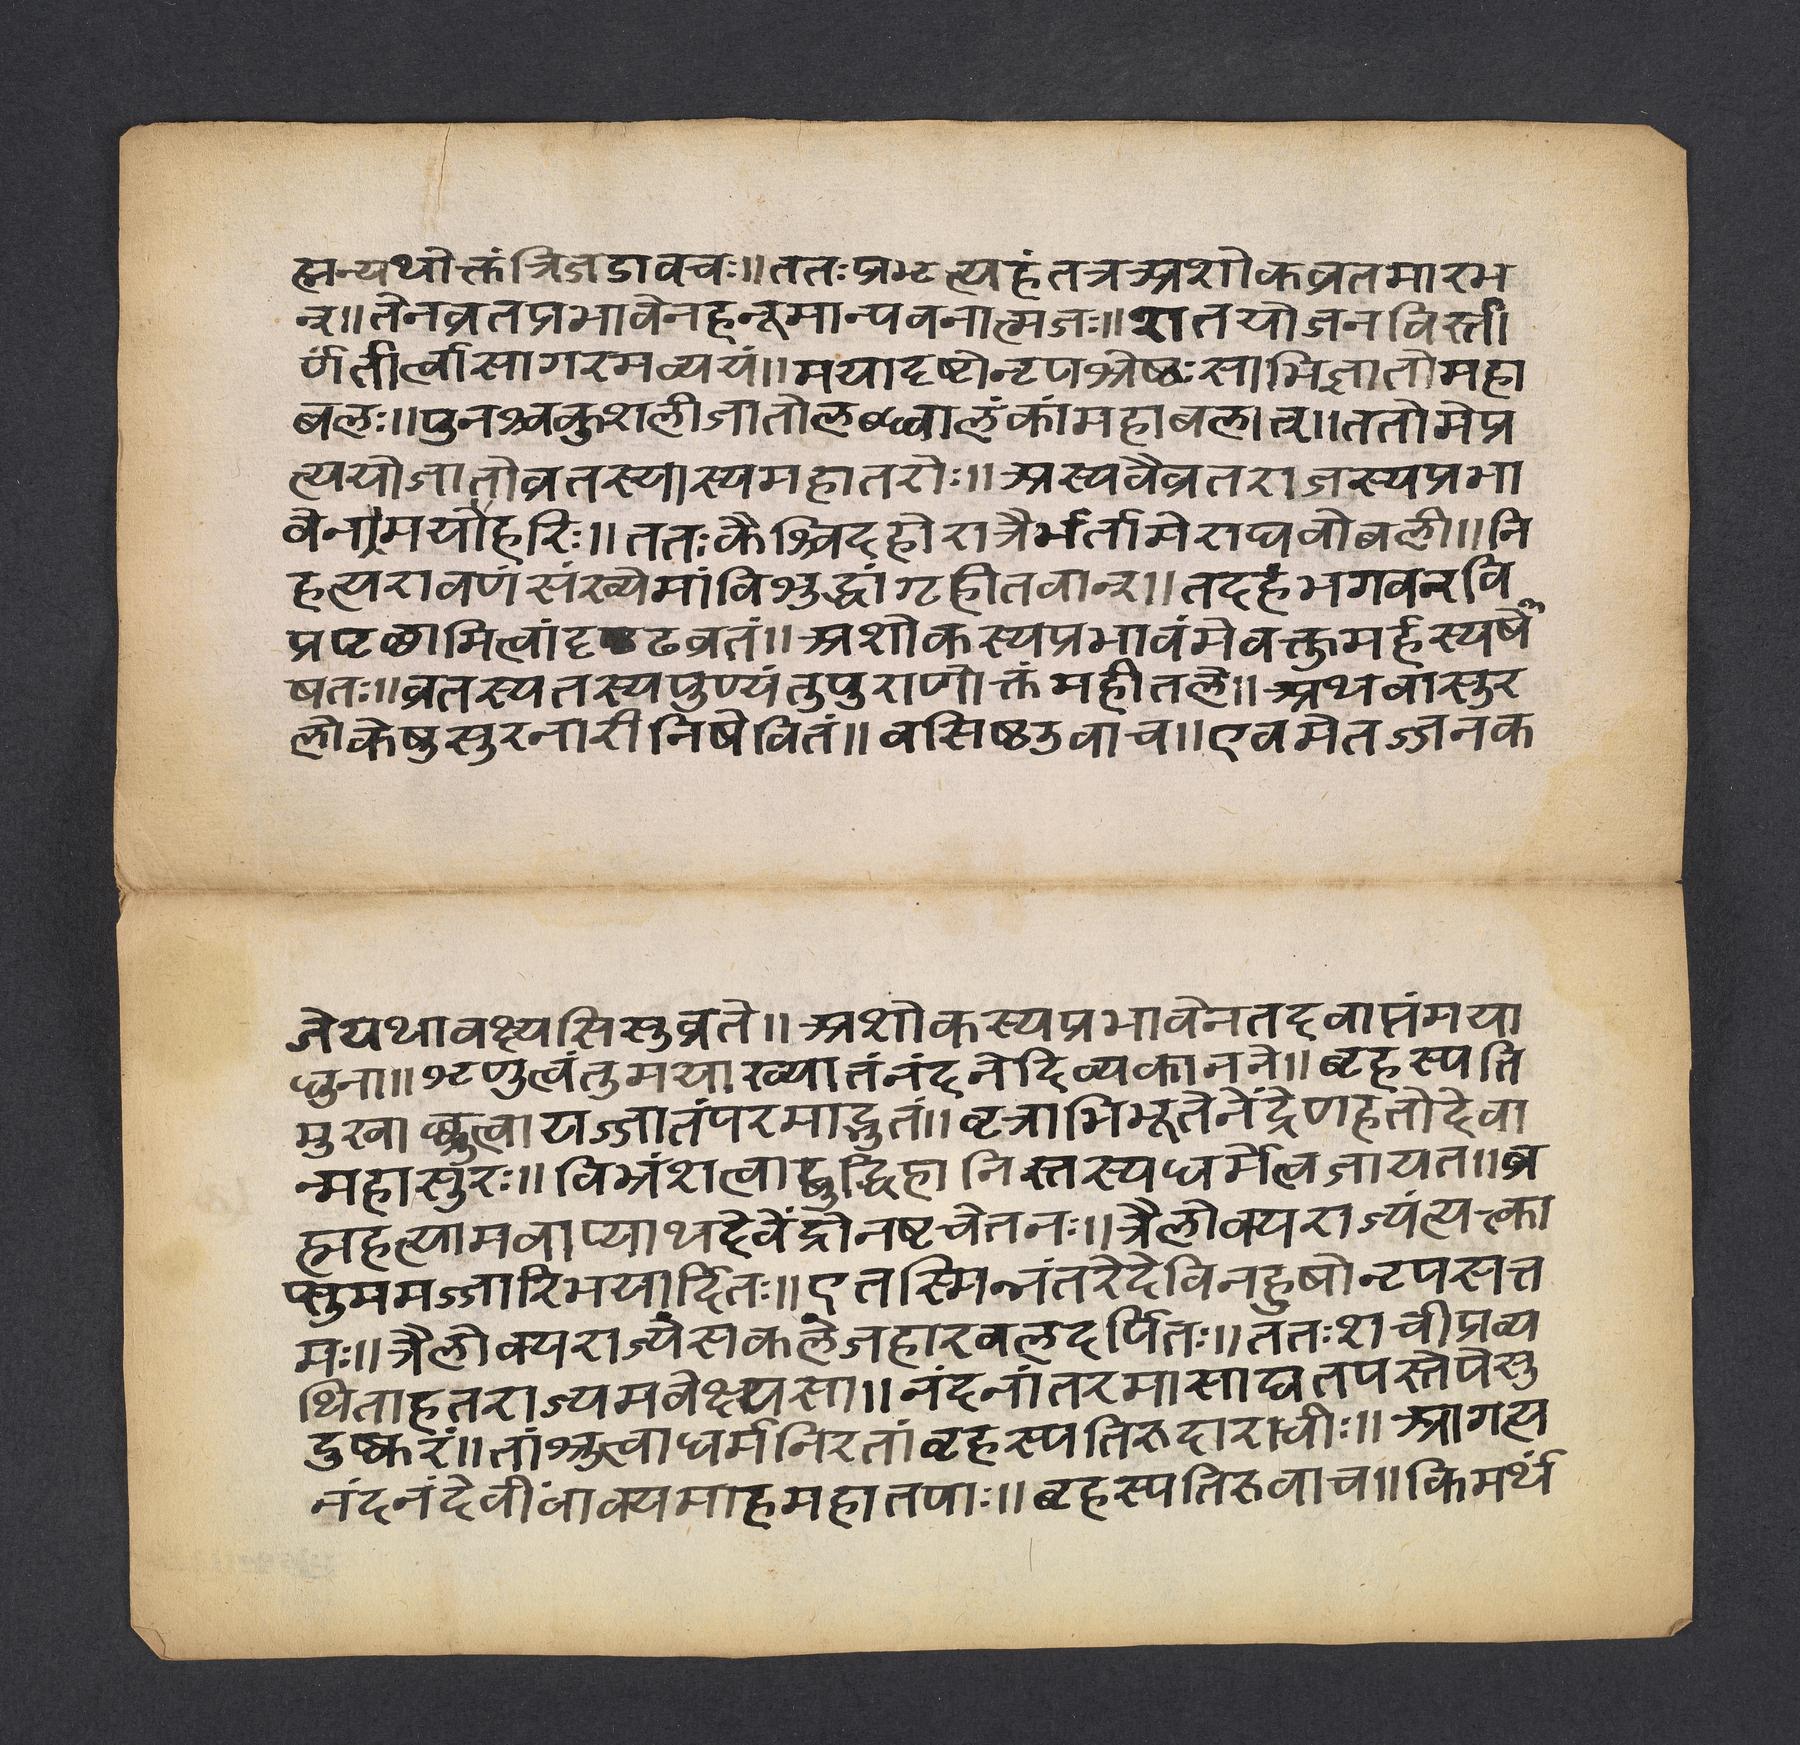 ह्मन्यथोक्तंत्रिजडावचः॥ततःप्रभृत्यहंतत्रअशोकव्रतमारभ
न्॥तेनव्रतप्रभावेनहनूमान्पवनात्मजः॥शतयोजनविस्ती
र्णंतीर्त्वासागरमव्ययं॥मयादृष्टोनृणश्रेष्ठःसाभिज्ञातोमहा
बलः॥पुनश्चकुशलीजातोलब्ध्वालंकांमहाबलात्॥ततोमेप्र
त्ययोजातोव्रतस्यास्यमहातरोः॥अस्यवैव्रतराजस्यप्रभा
वेनामयोहरिः॥ततःकैश्चिदहोरात्रैर्भर्तामेराघवोबली॥नि
हत्यरावणंसंख्येमांविशुद्धांगृहीतवान्॥तदहंभगवन्वि
प्रपृछामित्वांदृढव्रतं॥अशोकस्यप्रभावंमेवक्तुमर्हस्यषे
षतः॥व्रतस्यतस्यपुण्यंतुपुराणोक्तंमहीतले॥अथवासुर
लोकेषुसुरनारीनिषेवितं॥वसिष्ठउवाच॥एवमेतज्जनक
जेयथावक्ष्यसिसुव्रते॥अशोकस्यप्रभावेनतदवाप्तंमया
धुना॥शृणुत्वंतुमयाख्यातंनंदनेदिव्यकानने॥बृहस्पति
मुखाच्छ्रुत्वायज्जातंपरमाद्भुतं॥वृत्राभिभूतेनेंद्रेणहतोदेवा
न्महासुरः॥विभ्रंशत्वाद्बुद्धिहानिस्तस्यधर्मेत्वजायत॥ब्र
ह्महत्यामवाप्याथदेवेंद्रोनष्टचेतनः॥त्रैलोक्यराज्यंत्यक्त्वा
प्सुममज्जारिभयार्दितः॥एतस्मिन्नंतरेदेविनहुषोनृपसत्त
मः॥त्रैलोक्यराज्यंसकलंजहारबलदर्पितः॥ततःशचीप्रव्य
थिताहृतराज्यमवेक्ष्यसा॥नंदनांतरमासाद्यतपस्तेपेसु
दुष्करं॥तांश्रुत्वाधर्मनिरतांबृहस्पतिरुदारधीः॥आगत्य
नंदनंदेवींवाक्यमाहमहातपाः॥बृहस्पतिरुवाच॥किमर्थं